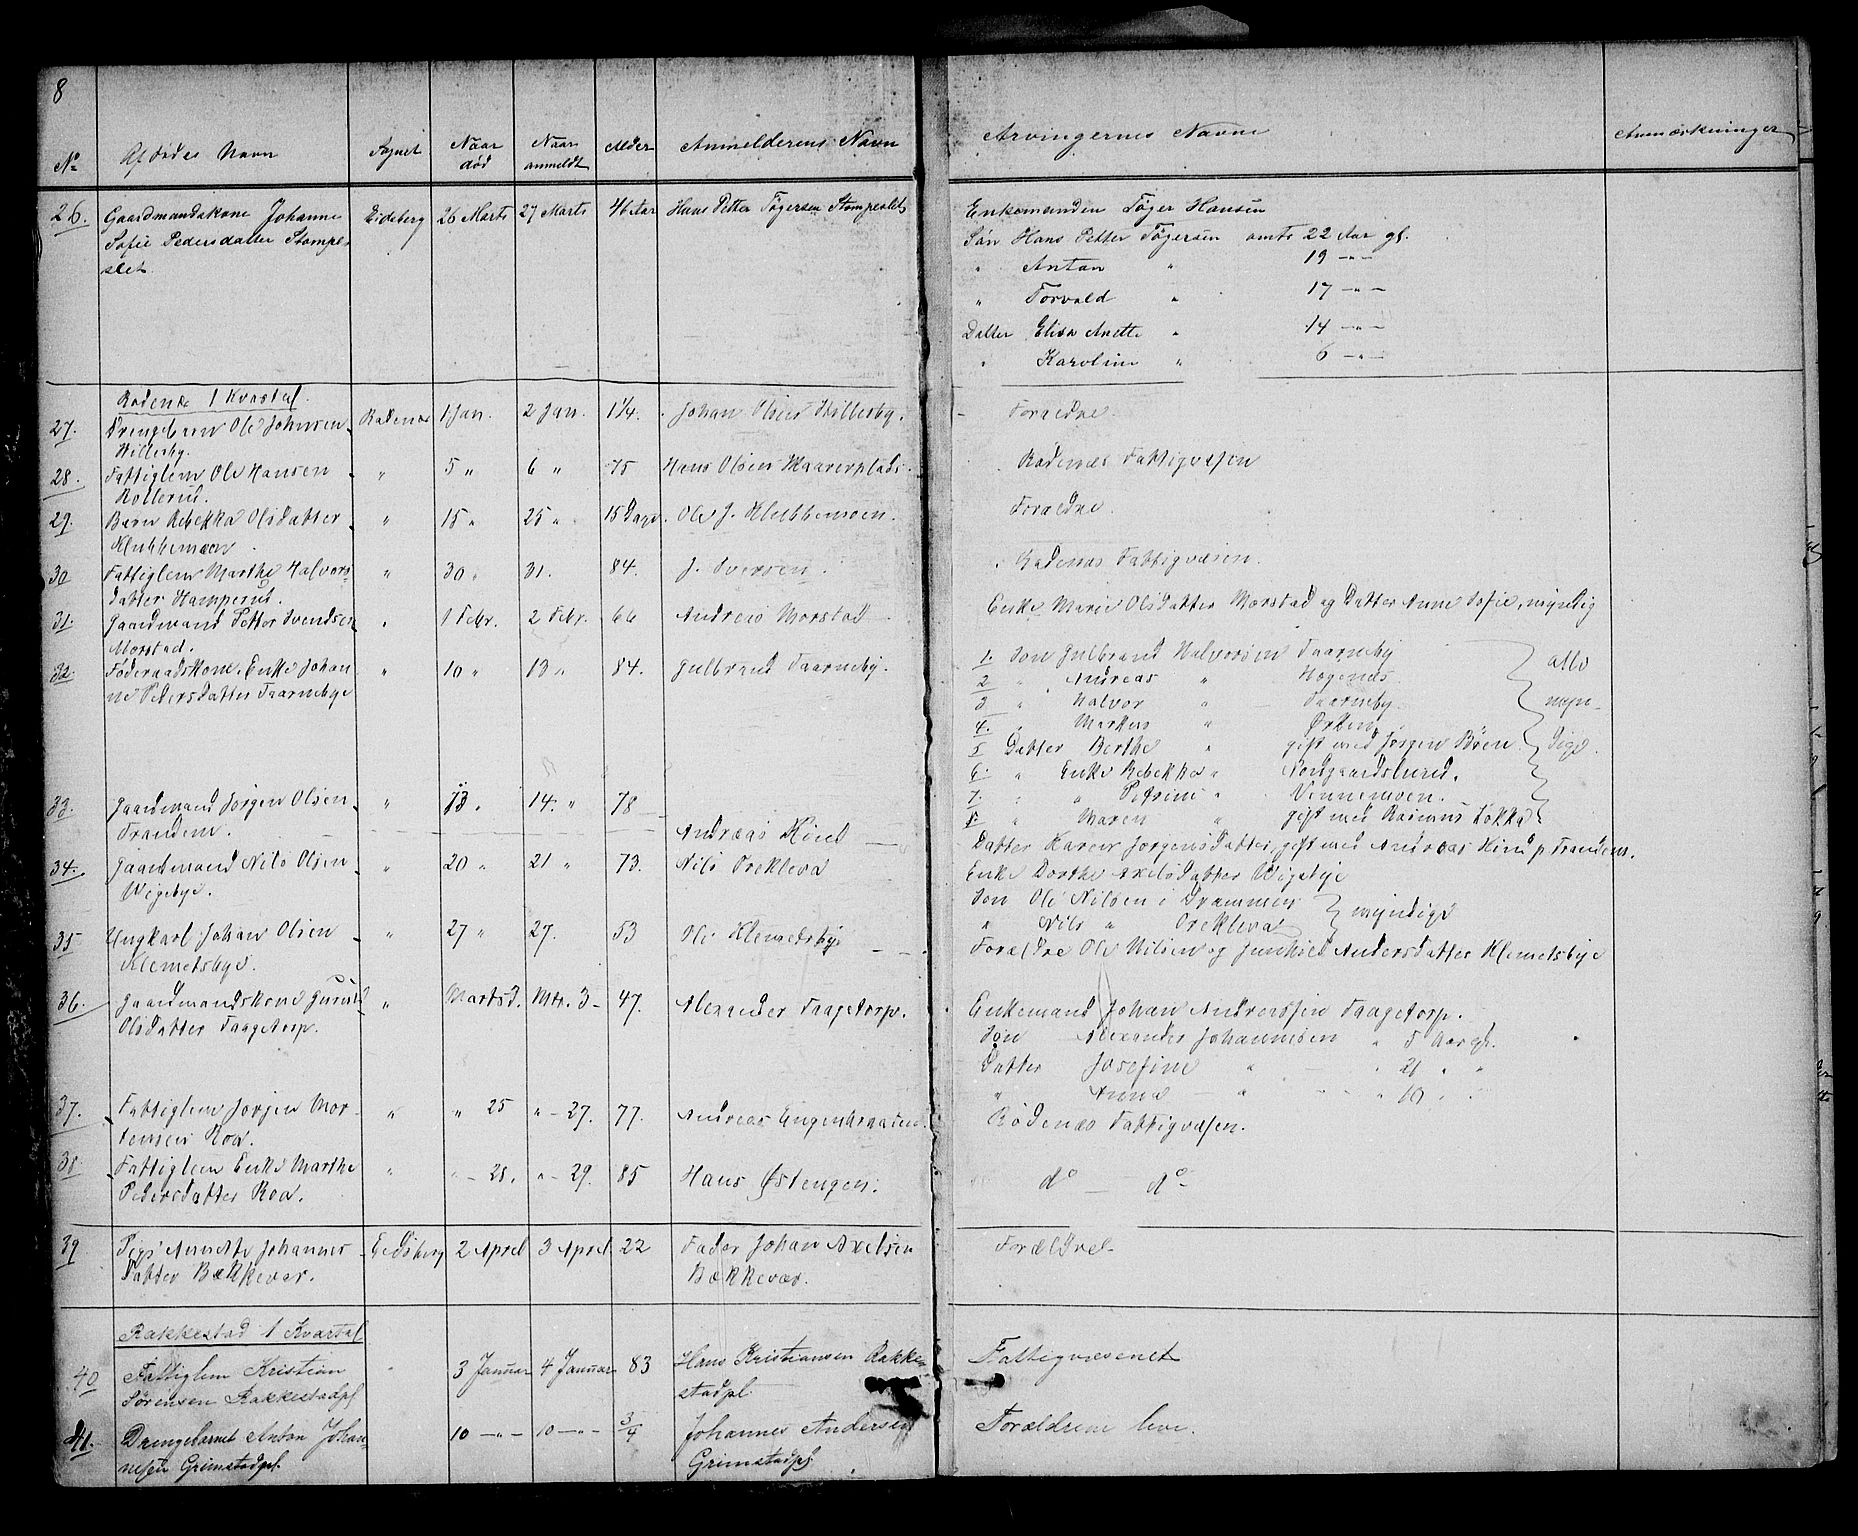 8
No Afdødes Navn Sognet Naar død Naar anmeldt Alder Anmelderens Navn Arvingernes Navne Anmærkninger
26. Gaardmandskone Johanne Eidsberg 26 Marts 27 Marts 46 Aar Hans Petter Tøgersen Stompeslet Enkemanden Tøger Hansen
Sofie Pedersdatter Stompe- Søn Hans Petter Tøgersen omtr 22 Aar gl.
slet " Anton " 19 -"-
" Torvald " 17 -"-
Datter Elisa Anette " 14 -"-
" Karoline " 6 -"-
Rødenæs 1 Kvartal
27. Drengebarn Ole Johnsen Rødenæs 1 Jan. 2 Jan. 1 1/4. Johan Olsen Hillesby. Forældre.
Hillesby.
28. Fattiglem Ole Hansen " 5 " 6 " 75 Hans Olsen Rødenæs Fattigvæsen
Rollerud.
29. Barn Rebekka Olsdatter " 15 " 25 " 15 Dage. Ole J. Klubbemoen. Forældre
Klubbemoen
30 Fattiglem Marthe Halvors- " 30 " 31. 84. J. Iversen. Rødenæs Fattigvæsen.
datter Hamperud.
31. Gaardmand Petter Svendsen " 1 Febr. 2 Febr. 66 Andreas Morstad Enke Marie Olsdatter Morstad og Datter Anne Sofie, myndig
Morstad.
32. Føderaadskone, Enke Johan- " 10 " 13 " 84. Gulbrand Taarneby. 1. Søn Gulbrand Halvorsen Taarneby alle
ne Pedersdatter Taarnebye 2 " Andreas " Hagenæs
3 " Halvor " Taarneby myn-
4. " Markus "
5 Datter Berthe " gift med Jørgen Bøen. dige.
6. " Enke Rebekka "
7. " " Petrine " Vennemoen.
8. " Maren " gift med Rasmus Løkka
33. Gaardmand Jørgen Olsen " 13 " 14. " 78 Andreas Kind Datter Karen Jørgensdatter, gift med Andreas Kind p. Trandem.
Trandem.
34. Gaardmand Nils Olsen " 20 " 21 " 73. Nils Orekleva Enke Dorthe Axelsdatter Wigebye
Wigebye. Søn Ole Nilsen i Drammen myndige
" Nils " Orekleva
35 Ungkarl Johan Olsen " 27 " 27. 53 Ole Klemetsbye Forældre Ole Nilsen og Gunhild Andersdatter Klemetsbye
Klemetsbye.
36. Gaardmandskone Gunild " Martsd. Mts. 3- 47. Alexander Taagetorp. Enkemand Johan Andreassen Taagetorp.
Olsdatter Taagetorp. Søn Alexander Johannesen " 5 Aar gl.
Datter Josefine " 21 " "
" Anna " 10 " "
37. Fattiglem Jørgen Mor- " " 25 " - 27. 77. Andreas Engenbraaten Rødenæs Fattigvæsen.
tensen Roa.
38. Fattiglem Enke Marthe " " - 28. " - 29. 85 Hans Østengen. do — do
Pedersdatter Roa.
39 Pige Annethe Johannes- Eidsberg 2 April 3 April 22 Fader Johan Axelsen Forældre
datter Bækkevar. Bækkevar.
Rakkestad 1 Kvartal
40 Fattiglem Kristian " 3 Januar 4 Januar 83 Hans Kristiansen Rakke- Fattigvæsenet
Sørensen Rakkestadpl stadpl
41. Drengebarnet Anton Johan- 10 -"- 10 -"- 3/4 Johannes Andersen Forældrene leve.
nesen Grimstadpl. Grimstadpl